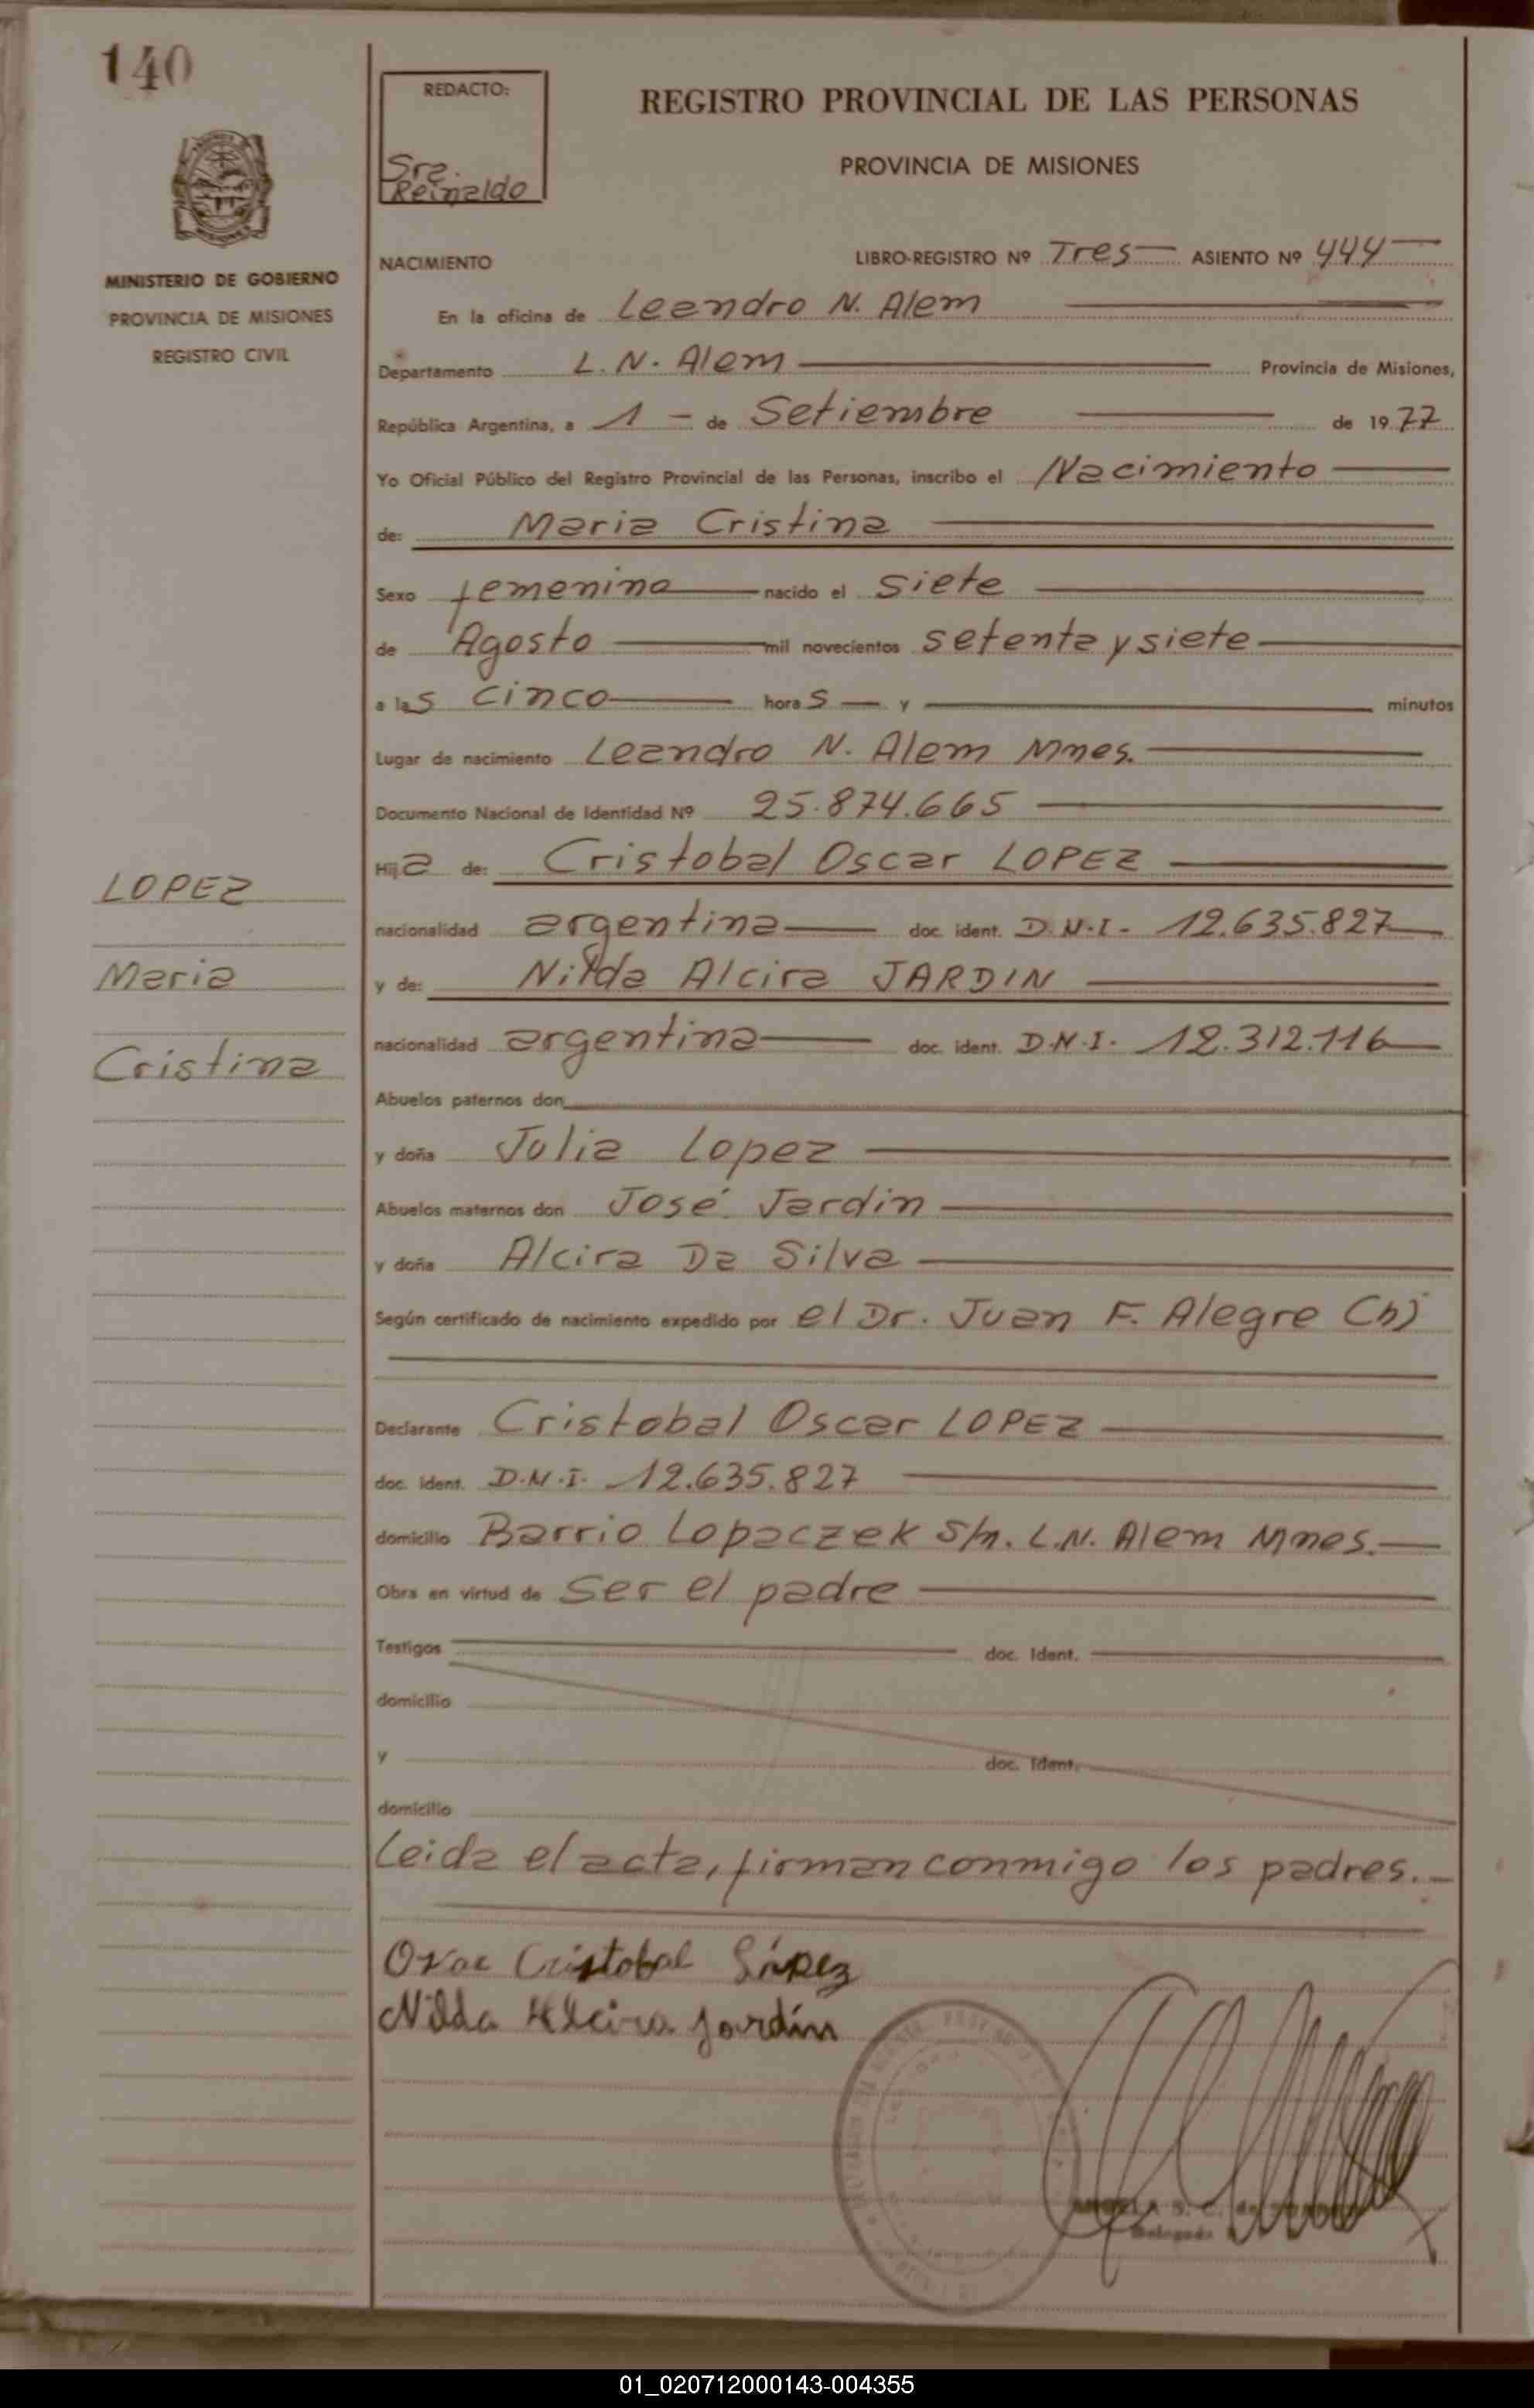 140
REDACTO:
Sra.
Reinaldo
REGISTRO PROVINCIAL DE LAS PERSONAS
PROVINCIA DE MISIONES
MINISTERIO DE GOBIERNO
PROVINCIA DE MISIONES
REGISTRO CIVIL
NACIMIENTO LIBRO-REGISTRO Nº Tres ASIENTO Nº 444
En la oficina de Leandro N. Alem
Departamento L. N. Alem Provincia de Misiones,
República Argentina, a 1 - de Setiembre de 1977
Yo Oficial Público del Registro Provincial de las Personas, inscribo el Nacimiento
de: Maria Cristina
Sexo femenino nacido el siete
de Agosto mil novecientos setenta y siete
a las cinco horas y minutos
Lugar de nacimiento Leandro N. Alem Mnes.
Documento Nacional de Identidad Nº 25.874.665
Hija de: Cristobal Oscar LOPEZ
LOPEZ
nacionalidad argentina doc. ident. D.N.I. 12.635.827
Maria
y de: Nilda Alcira JARDIN
nacionalidad argentina doc. ident. D.N.I. 12.312.116
Cristina
Abuelos paternos don
y doña Julia Lopez
Abuelos maternos don José Jardin
y doña Alcira Da Silva
Según certificado de nacimiento expedido por el Dr. Juan F. Alegre (h)
Declarante Cristobal Oscar LOPEZ
doc. ident. D.N.I. 12.635.827
domicilio Barrio Lopaczek S/n. L.N. Alem Mnes.
Obra en virtud de ser el padre
Testigos doc. Ident.
domicilio
y doc. Ident.
domicilio
Leida el acta, firman conmigo los padres.
Oscar Cristobal López
Nilda Alcira Jardín
01_020712000143-004355